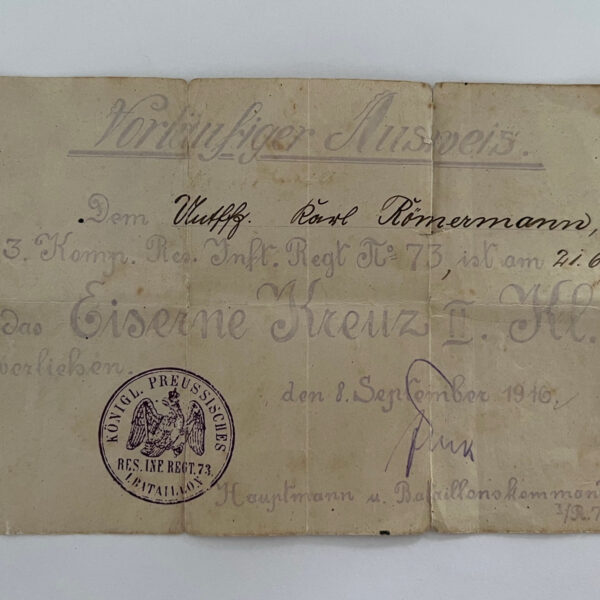 Vorläufiger Ausweis.
Dem Untffz. Karl Römermann,
3. Komp. Res. Inft. Regt No 73, ist am 21.6
das Eiserne Kreuz II. Kl.
verliehen.
den 8. September 1916.
KÖNIGL. PREUSSISCHES
RES. INF. REGT. 73.
I. BATAILLON
Hauptmann u. Bataillonskommand